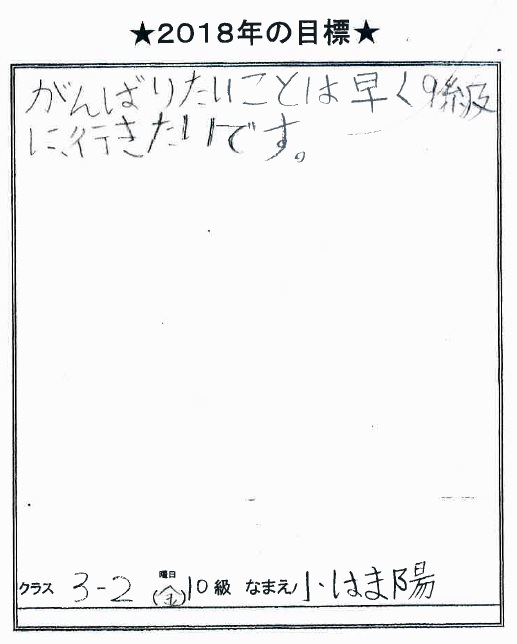 ★2018年の目標★
がんばりたいことは早く9級
に行きたいです。
クラス 3-2 曜日(金) 10級 なまえ 小はま陽